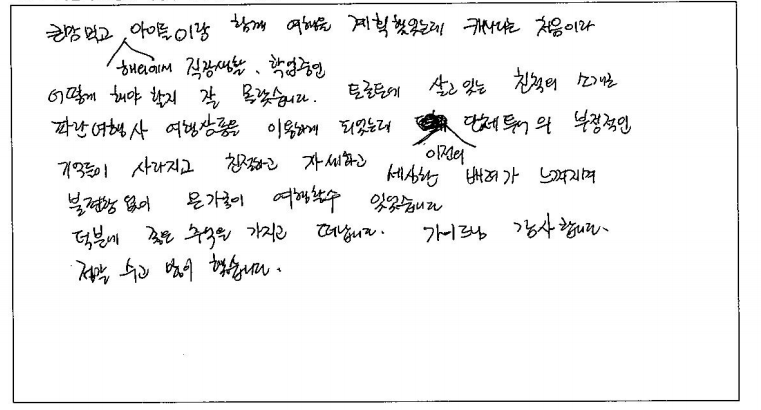 큰맘 먹고 아이들이랑 함께 여행을 계획했었는데 캐나다는 처음이라
해외에서 직장생활, 학업중인
어떻게 해야 할지 잘 몰랐습니다. 토론토에 살고 있는 친척의 소개로
파란여행사 여행상품을 이용하게 되었는데 단체투어의 부정적인
이전의
기억들이 사라지고 친절하고 자세하고 세심한 배려가 느껴지며
불편함 없이 온가족이 여행할수 있었습니다
덕분에 좋은 추억을 가지고 떠납니다. 가이드님 감사합니다.
정말 수고 많이 했습니다.